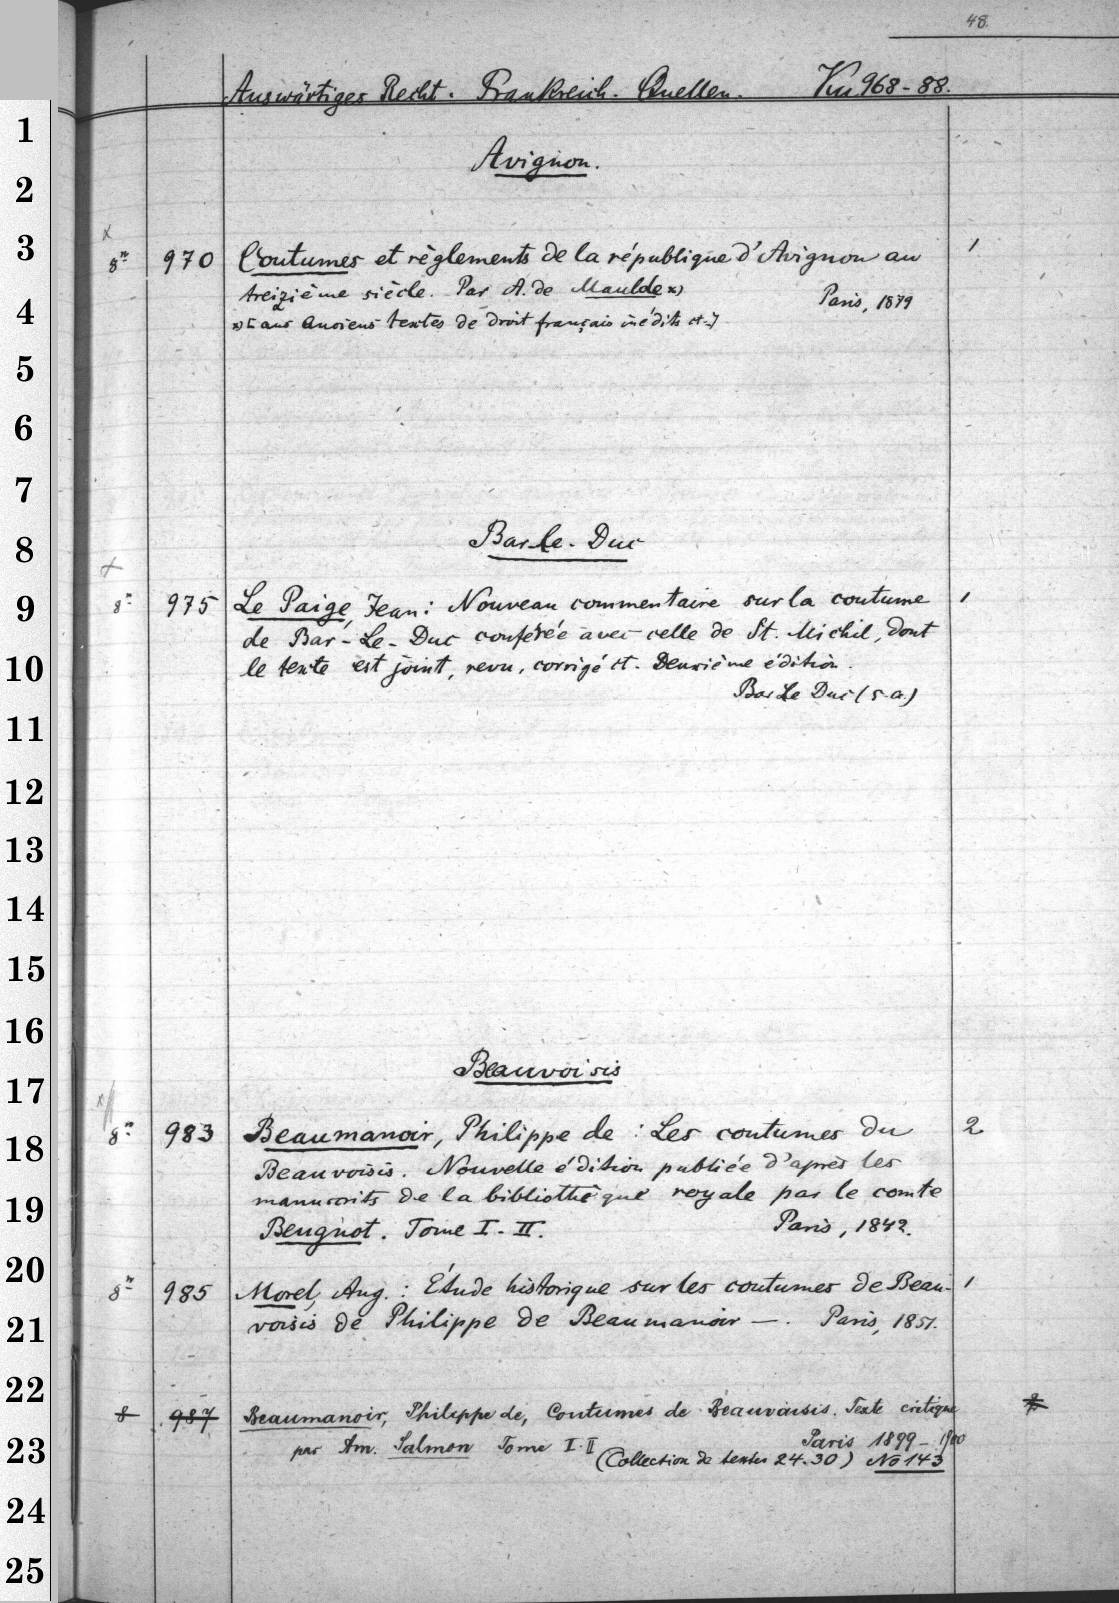 48.
Auswärtiges Recht. Frankreich. Quellen. Ku 968-88.
1
Avignon.
2
3
x
8° 970 Coutumes et règlements de la république d'Avignon au 1
treizième siècle. Par A. de Maulde x) Paris, 1879
4
x) [aus Anciens textes de droit français inédits et.]
5
6
7
8
Bar-le-Duc
x
9
8° 975 Le Paige, Jean: Nouveau commentaire sur la coutume 1
de Bar-Le-Duc conférée avec celle de St. Michel, dont
10
le texte est joint, revu, corrigé et. Deuxième édition.
Bar Le Duc (s.a.)
11
12
13
14
15
16
Beauvoisis
17
x
18
8° 983 Beaumanoir, Philippe de: Les coutumes du 2
Beauvoisis. Nouvelle édition publiée d'après les
19
manuscrits de la bibliothèque royale par le comte
Beugnot. Tome I-II. Paris, 1842.
20
8° 985 Morel, Aug.: Étude historique sur les coutumes de Beau- 1
21
voisis de Philippe de Beaumanoir —. Paris, 1851.
22
8 987 Beaumanoir, Philippe de, Coutumes de Beauvaisis. Texte critique
23
par Am. Salmon Tome I-II Paris 1899-1900
(Collection de textes 24.30) No 143
24
25